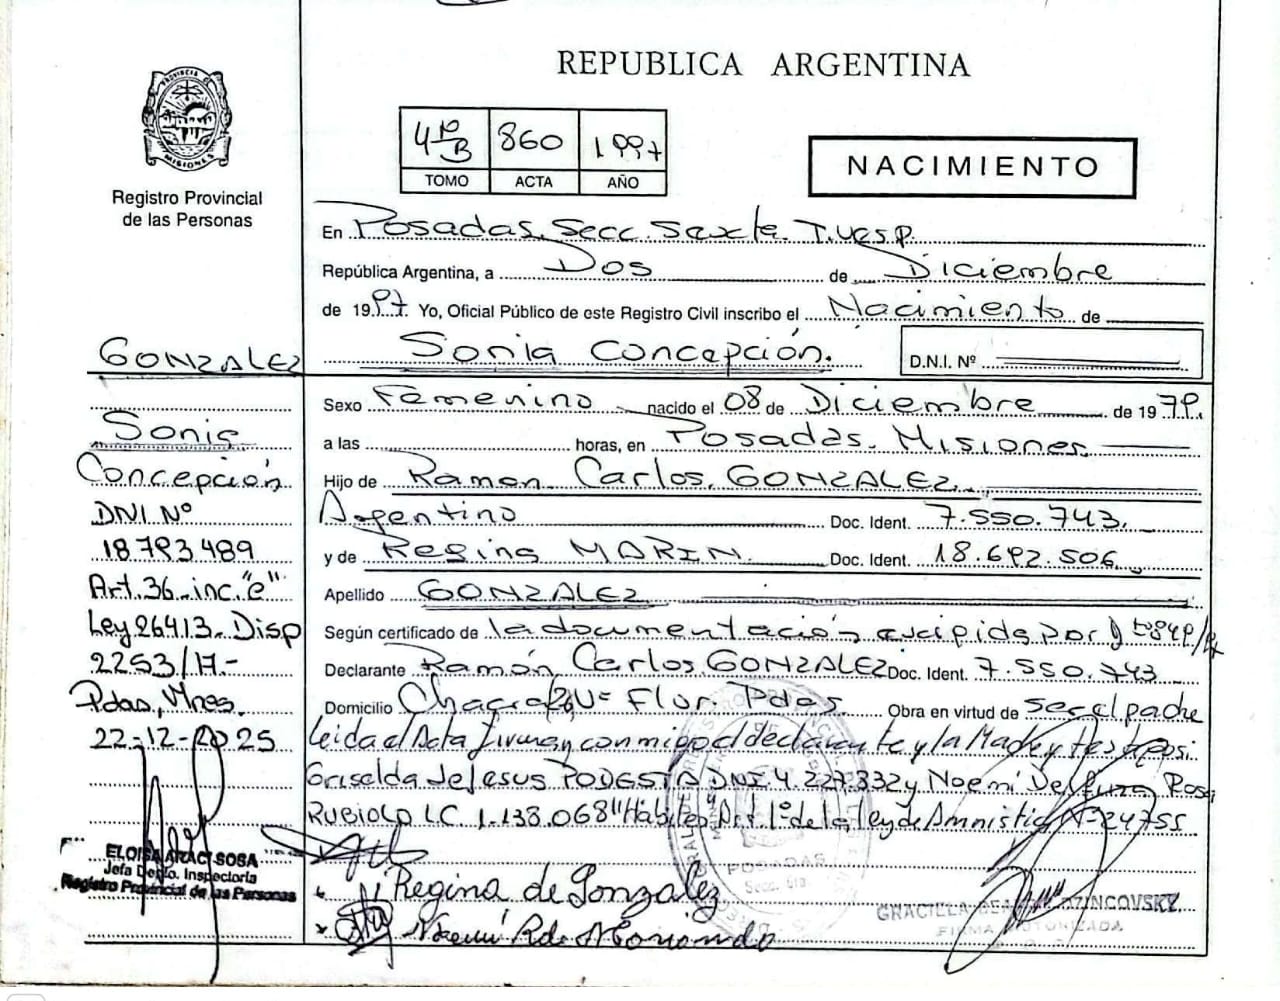 REPUBLICA ARGENTINA
PROVINCIA DE MISIONES
Registro Provincial
de las Personas
860 1997
TOMO ACTA AÑO
NACIMIENTO
En Posadas. Secc. Sexta. T. Vesp.
República Argentina, a Dos de Diciembre
de 1997. Yo, Oficial Público de este Registro Civil inscribo el Nacimiento de
Sonia Concepción. D.N.I. Nº
GONZALEZ
Sonia
Concepción
DNI. Nº
18.793.489
Art. 36.- inc. "e"
Ley 26413.- Disp
2253/17.-
Pdas, Mnes.
22-12-2025
ELOISA ARACI SOSA
Jefa Depto. Inspectoria
Registro Provincial de las Personas
Sexo Femenino nacido el 08 de Diciembre de 1979.
a las horas, en Posadas. Misiones
Hijo de Ramon Carlos. GONZALEZ.
Argentino Doc. Ident. 7.550.743.
y de Regina MARIN. Doc. Ident. 18.692.506
Apellido GONZALEZ
Según certificado de la documentación por
Declarante Ramón Carlos. GONZALEZ Doc. Ident. 7.550.743
Domicilio Flor. Pdas. Obra en virtud de ser el padre
leida el Acta firman conmigo el declarante y la Madre y
Griselda de Jesus PODESTA DNI. 4.227.332 y Noemi Rosa
RUBIOLO LC 1.138.068 Art. 1º de la ley de Amnistia Nº 24755
Regina de Gonzalez
Noemí R. de
POSADAS
Secc. 6ta.
FIRMA AUTORIZADA